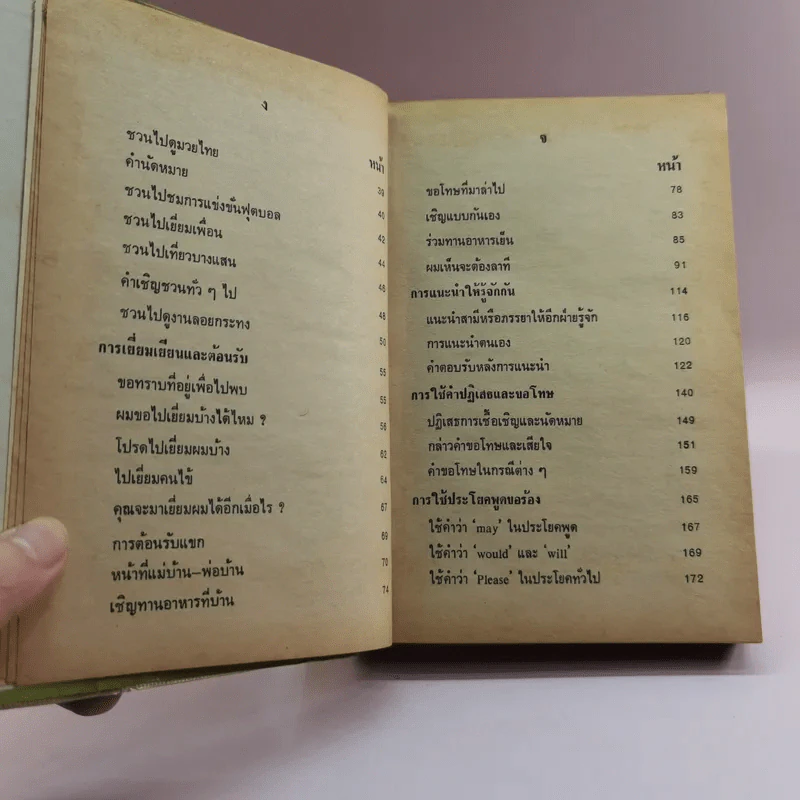 ง
หน้า
ชวนไปดูมวยไทย 39
คำนัดหมาย 40
ชวนไปชมการแข่งขันฟุตบอล 42
ชวนไปเยี่ยมเพื่อน 44
ชวนไปเที่ยวบางแสน 46
คำเชิญชวนทั่ว ๆ ไป 48
ชวนไปดูงานลอยกระทง 50
การเยี่ยมเยียนและต้อนรับ 55
ขอทราบที่อยู่เพื่อไปพบ 55
ผมขอไปเยี่ยมบ้างได้ไหม ? 56
โปรดไปเยี่ยมผมบ้าง 62
ไปเยี่ยมคนไข้ 64
คุณจะมาเยี่ยมผมได้อีกเมื่อไร ? 67
การต้อนรับแขก 69
หน้าที่แม่บ้าน–พ่อบ้าน 70
เชิญทานอาหารที่บ้าน 74
จ
หน้า
ขอโทษที่มาล่าไป 78
เชิญแบบกันเอง 83
ร่วมทานอาหารเย็น 85
ผมเห็นจะต้องลาที 91
การแนะนำให้รู้จักกัน 114
แนะนำสามีหรือภรรยาให้อีกฝ่ายรู้จัก 116
การแนะนำตนเอง 120
คำตอบรับหลังการแนะนำ 122
การใช้คำปฏิเสธและขอโทษ 140
ปฏิเสธการเชื้อเชิญและนัดหมาย 149
กล่าวคำขอโทษและเสียใจ 151
คำขอโทษในกรณีต่าง ๆ 159
การใช้ประโยคพูดขอร้อง 165
ใช้คำว่า ‘may’ ในประโยคพูด 167
ใช้คำว่า ‘would’ และ ‘will’ 169
ใช้คำว่า ‘Please’ ในประโยคทั่วไป 172